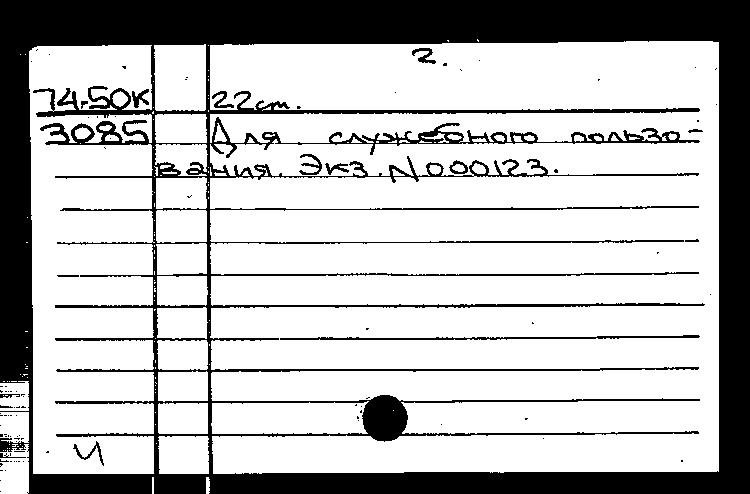 2.
74-50К 22cm.
3085 Для служебного пользо-
вания. Экз. N000123.
И